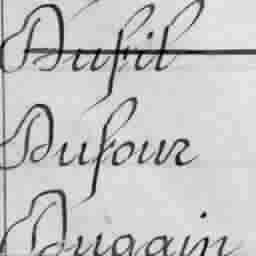 Dufil
Dufour
Dugain